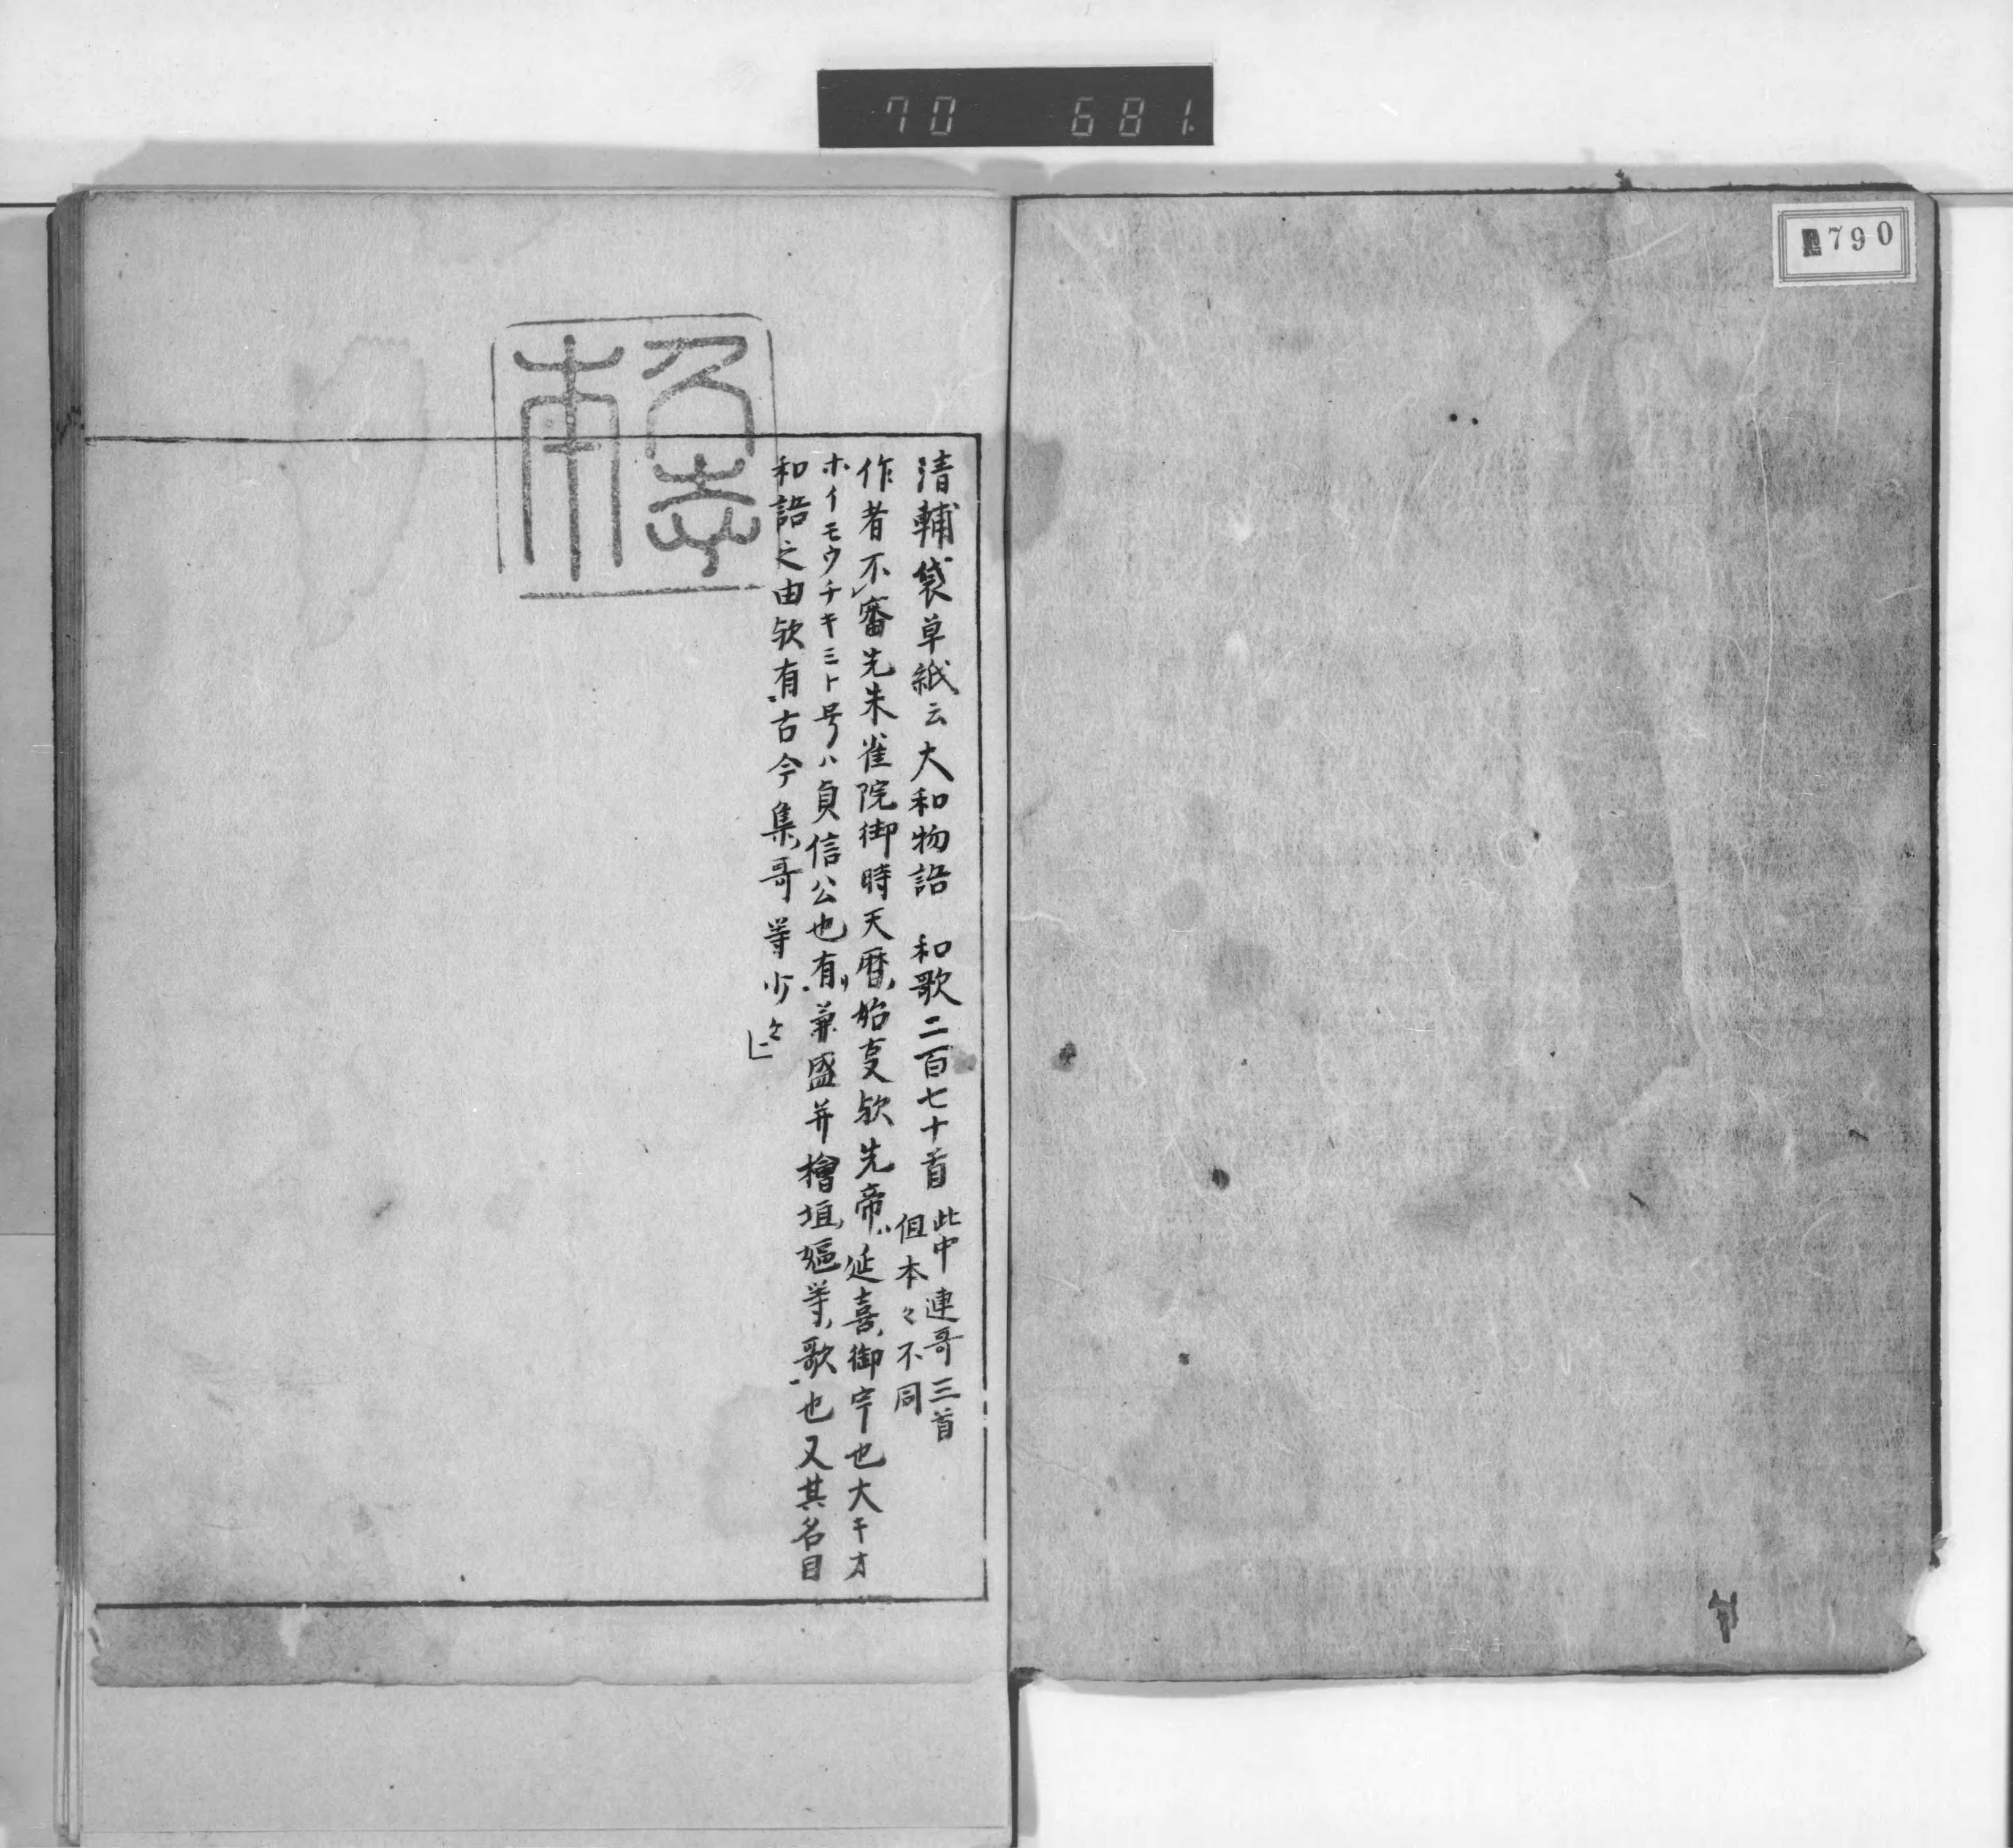 70 681
790
清輔袋草紙云大和物語 和歌二百七十首 此中連哥三首
但本々不同
作者不審先朱雀院御時天暦始叓欤先帝ハ延喜御宇也大キオ
ホイモウチキミト号ハ貞信公也有兼盛并檜垣嫗等歌也又其名目
和語之由欤有古今集哥等少々